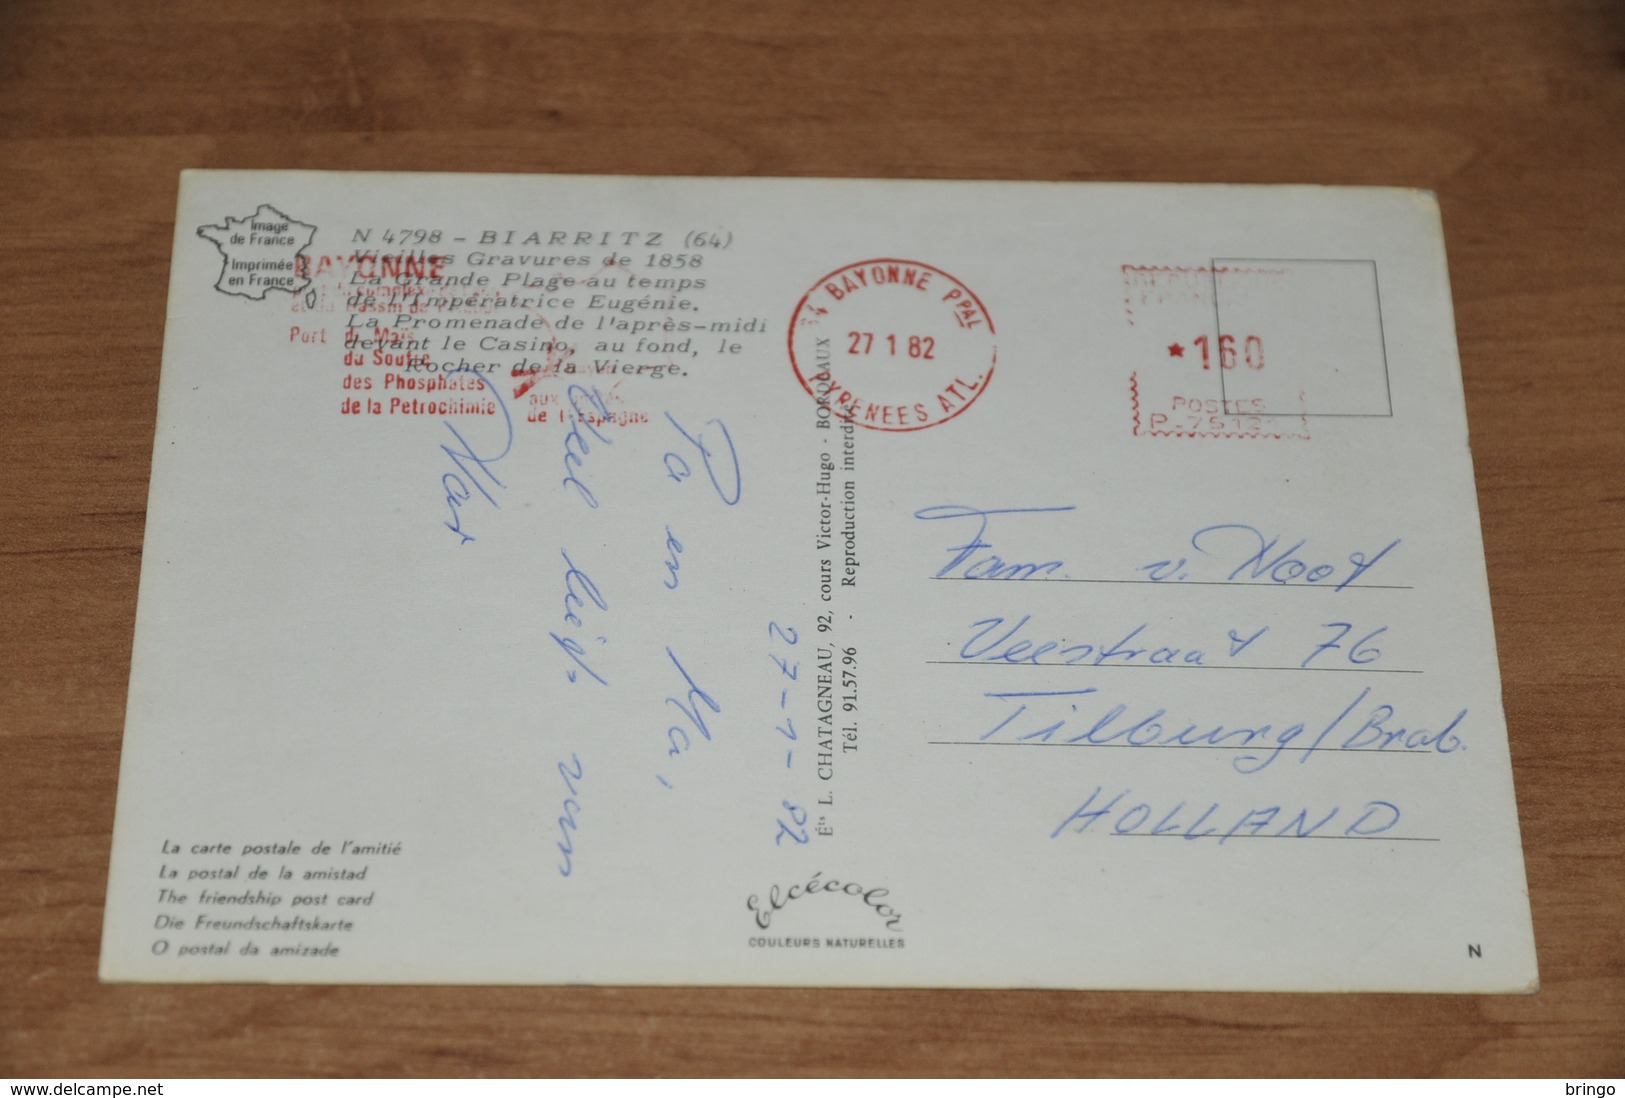 Image
de France
Imprimée
en France
N 4798 - BIARRITZ (64)
Vieilles Gravures de 1858
La Grande Plage au temps
de l'Impératrice Eugénie.
La Promenade de l'après-midi
devant le Casino, au fond, le
Rocher de la Vierge.
BAYONNE
Port du Maïs
du Soufre
des Phosphates
de la Petrochimie
aux
de l'Espagne
BAYONNE PPAL
27 1 82
PYRENEES ATL.
★ 160
POSTES
27-1-82
Pa en Ma,
Veel liefs van
Mart
Éts L. CHATAGNEAU, 92, cours Victor-Hugo - BORDEAUX
Tél. 91.57.96 - Reproduction interdite
Fam. v. Noot
Veestraat 76
Tilburg/Brab.
HOLLAND
La carte postale de l'amitié
La postal de la amistad
The friendship post card
Die Freundschaftskarte
O postal da amizade
Elcécolor
COULEURS NATURELLES
N
www.delcampe.net
bringo